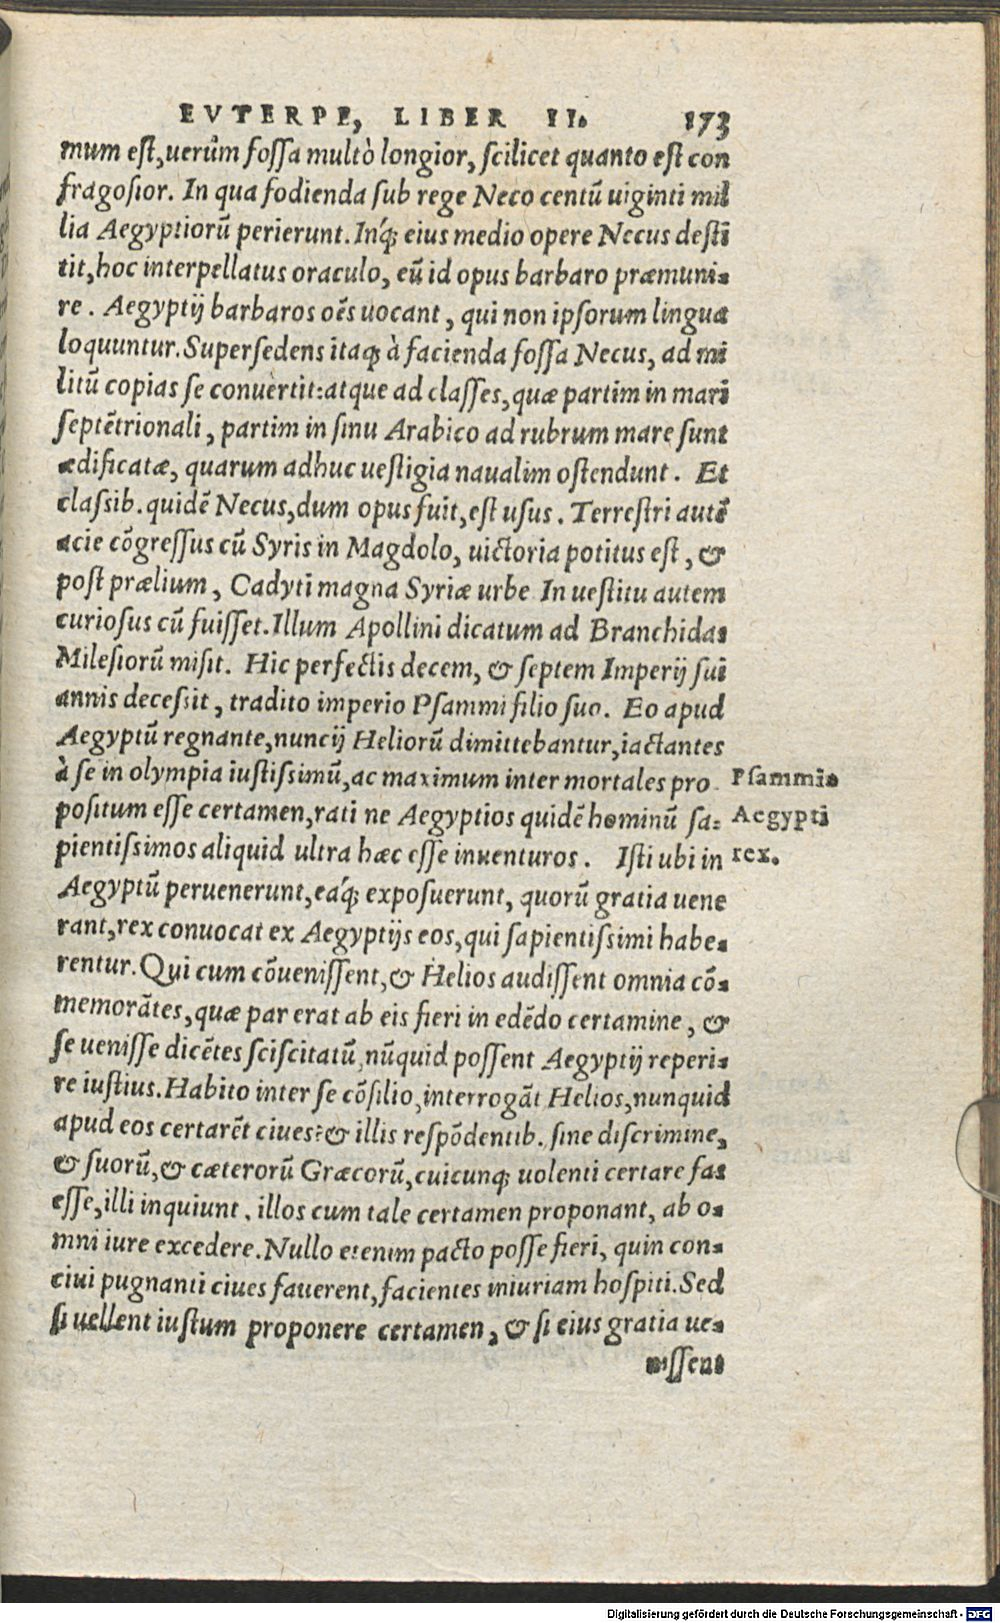 EVTERPE, LIBER II. 173
mum est, uerûm fossa multò longior, scilicet quanto est con
fragosior. In qua fodienda sub rege Neco centũ uiginti mil
lia Aegyptiorũ perierunt. Inq́; eius medio opere Necus destĩ
tit, hoc interpellatus oraculo, eũ id opus barbaro præmuni-
re. Aegyptij barbaros oẽs uocant, qui non ipsorum lingua
loquuntur. Supersedens itaq; à facienda fossa Necus, ad mi
litũ copias se conuertit: atque ad classes, quæ partim in mari
septẽtrionali, partim in sinu Arabico ad rubrum mare sunt
ædificatæ, quarum adhuc uestigia naualim ostendunt. Et
classib. quidẽ Necus, dum opus fuit, est usus. Terrestri autẽ
acie cõgressus cũ Syris in Magdolo, uictoria potitus est, &
post prælium, Cadyti magna Syriæ urbe In uestitu autem
curiosus cũ fuisset. Illum Apollini dicatum ad Branchidas
Milesiorũ misit. Hic perfectis decem, & septem Imperij sui
annis decessit, tradito imperio Psammi filio suo. Eo apud
Aegyptũ regnante, nuncij Heliorũ dimittebantur, iactantes
à se in olympia iustissimũ, ac maximum inter mortales pro
positum esse certamen, rati ne Aegyptios quidẽ hominũ sa-
pientissimos aliquid ultra hæc esse inuenturos. Isti ubi in
Psammis
Aegypti
rex.
Aegyptũ peruenerunt, eaq́; exposuerunt, quorũ gratia uene
rant, rex conuocat ex Aegyptijs eos, qui sapientissimi habe-
rentur. Qui cum cõuenissent, & Helios audissent omnia cõ-
memorãtes, quæ par erat ab eis fieri in edẽdo certamine, &
se uenisse dicẽtes sciscitatũ, nũquid possent Aegyptij reperi-
re iustius. Habito inter se cõsilio, interrogãt Helios, nunquid
apud eos certarẽt ciues? & illis respõdentib. sine discrimine,
& suorũ, & cæterorũ Græcorũ, cuicunq; uolenti certare fas
esse, illi inquiunt, illos cum tale certamen proponant, ab o-
mni iure excedere. Nullo etenim pacto posse fieri, quin con-
ciui pugnanti ciues fauerent, facientes iniuriam hospiti. Sed
si uellent iustum proponere certamen, & si eius gratia ue-
nissent
Digitalisierung gefördert durch die Deutsche Forschungsgemeinschaft - DFG